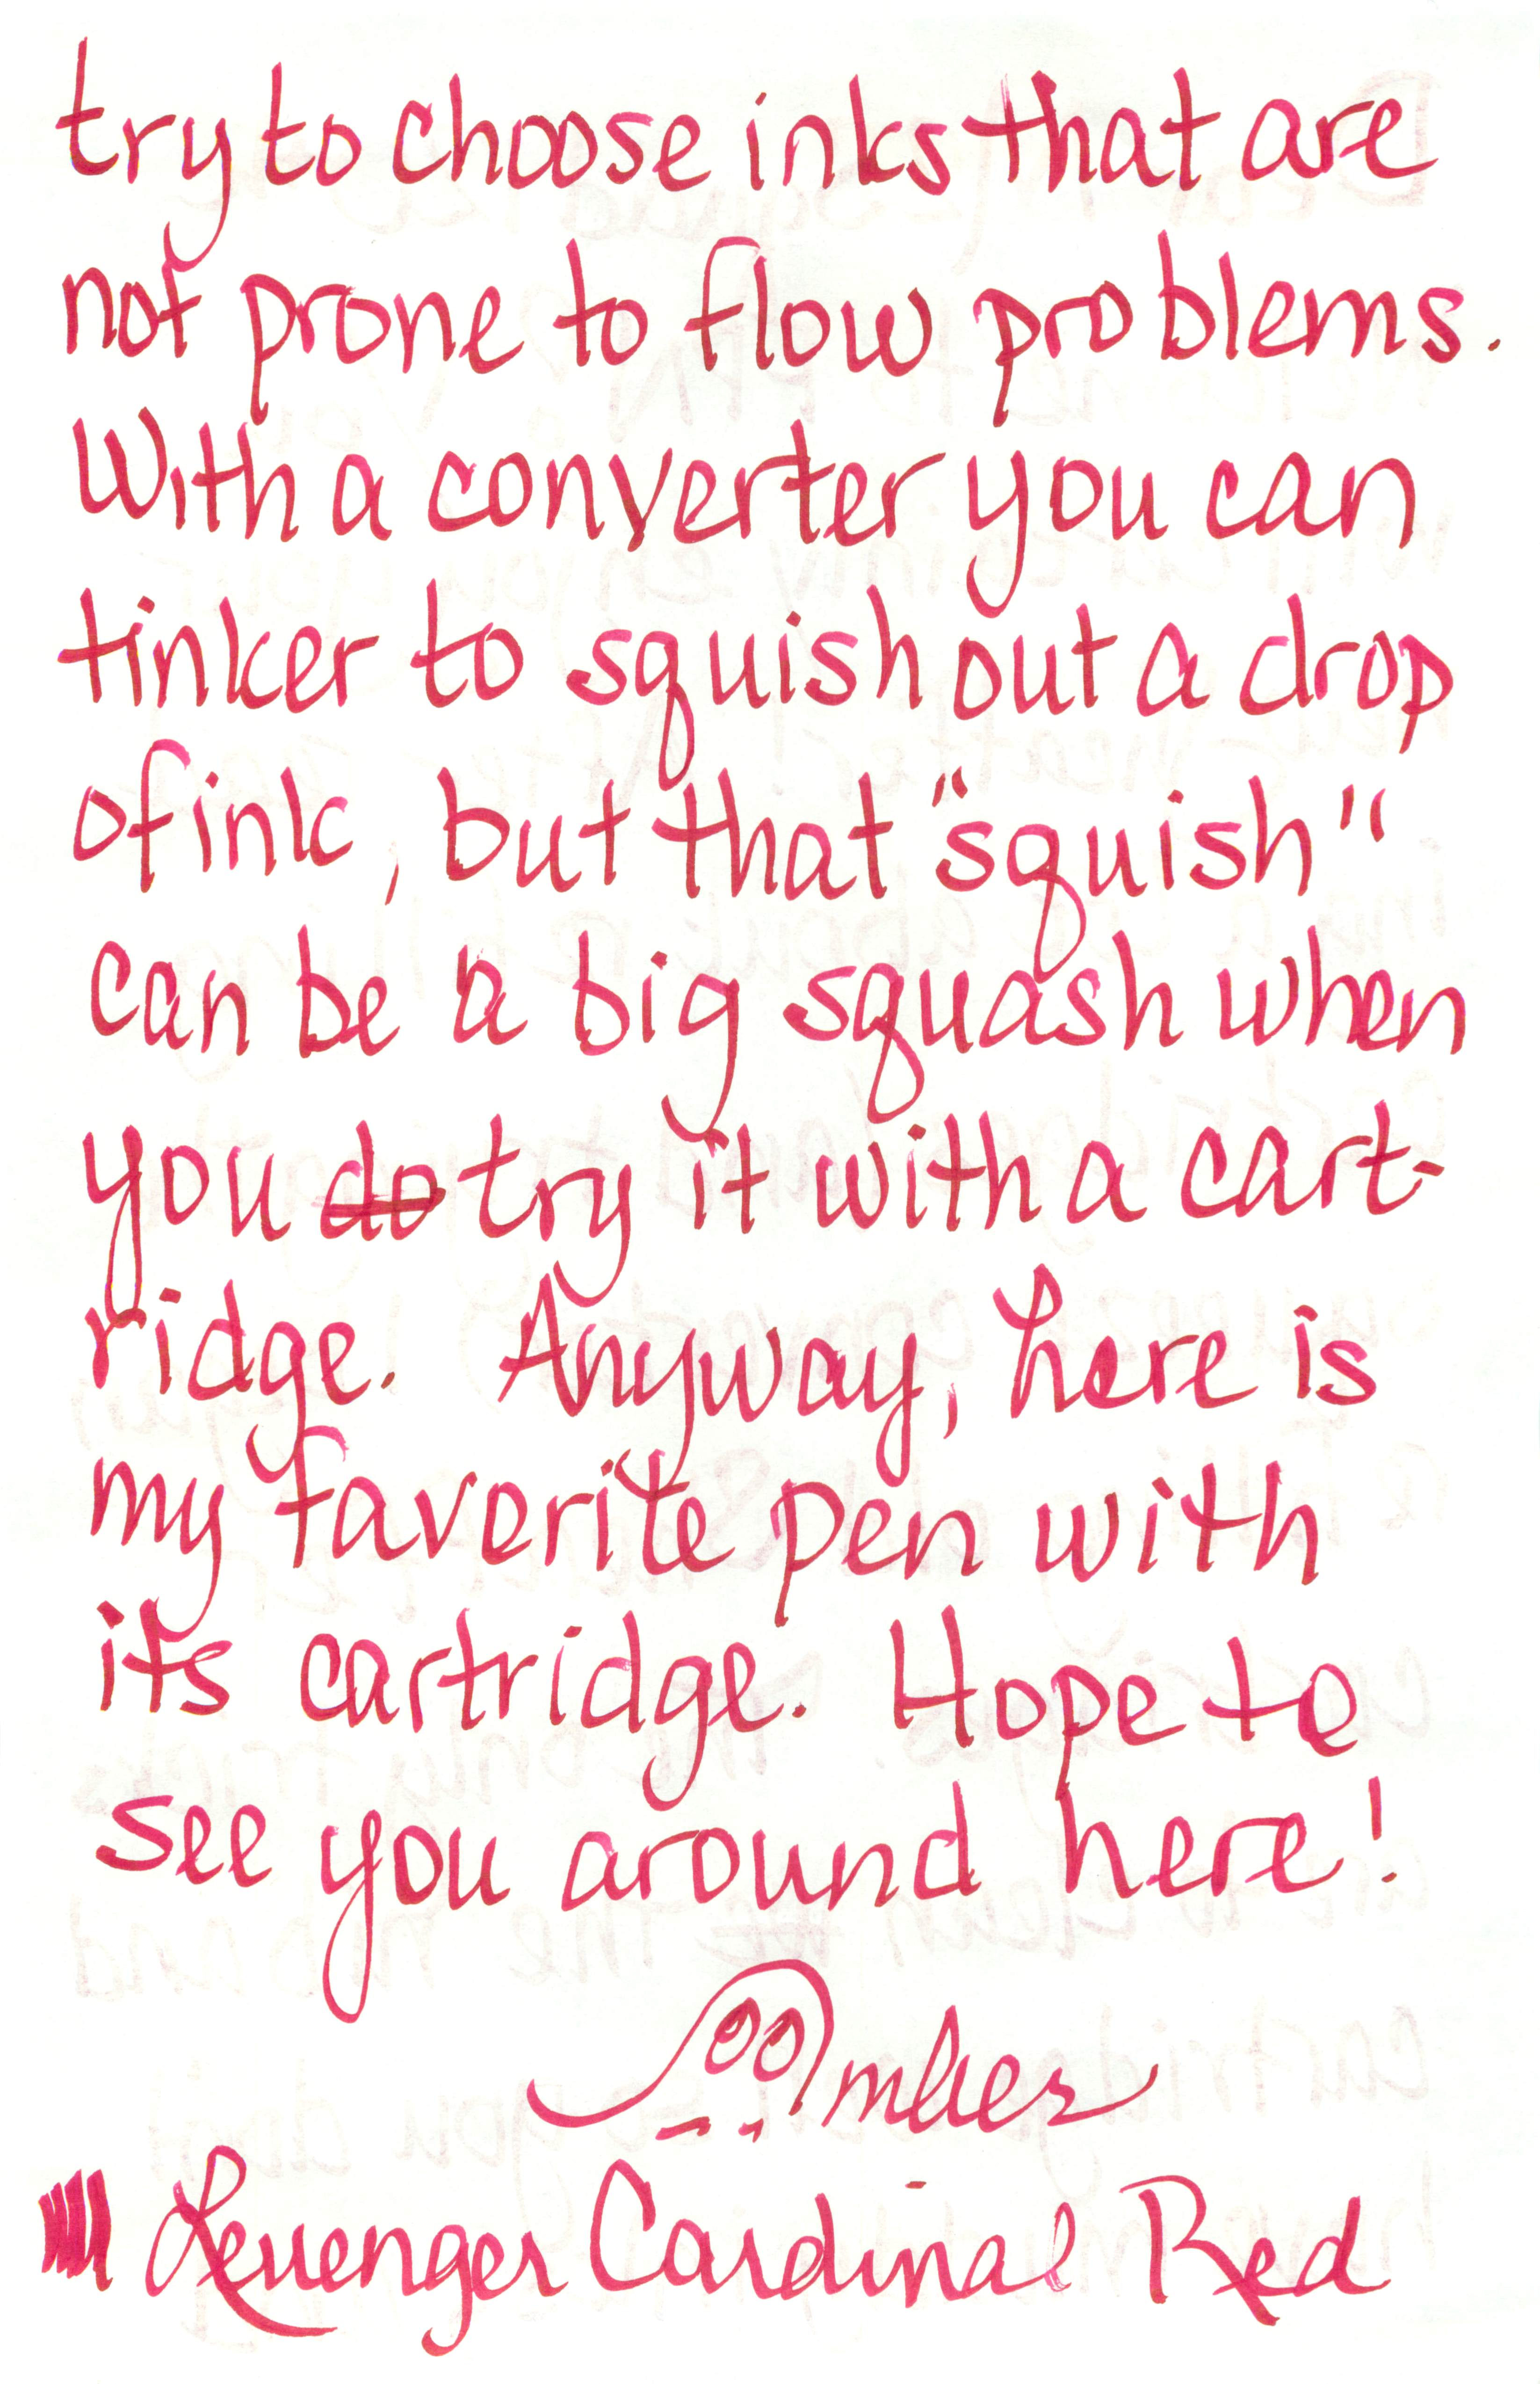 try to choose inks that are
not prone to flow problems.
With a converter you can
tinker to squish out a drop
of ink, but that "squish"
can be a big squash when
you do try it with a cart-
ridge. Anyway, here is
my favorite pen with
its cartridge. Hope to
see you around here!
Amber
Levenger Cardinal Red